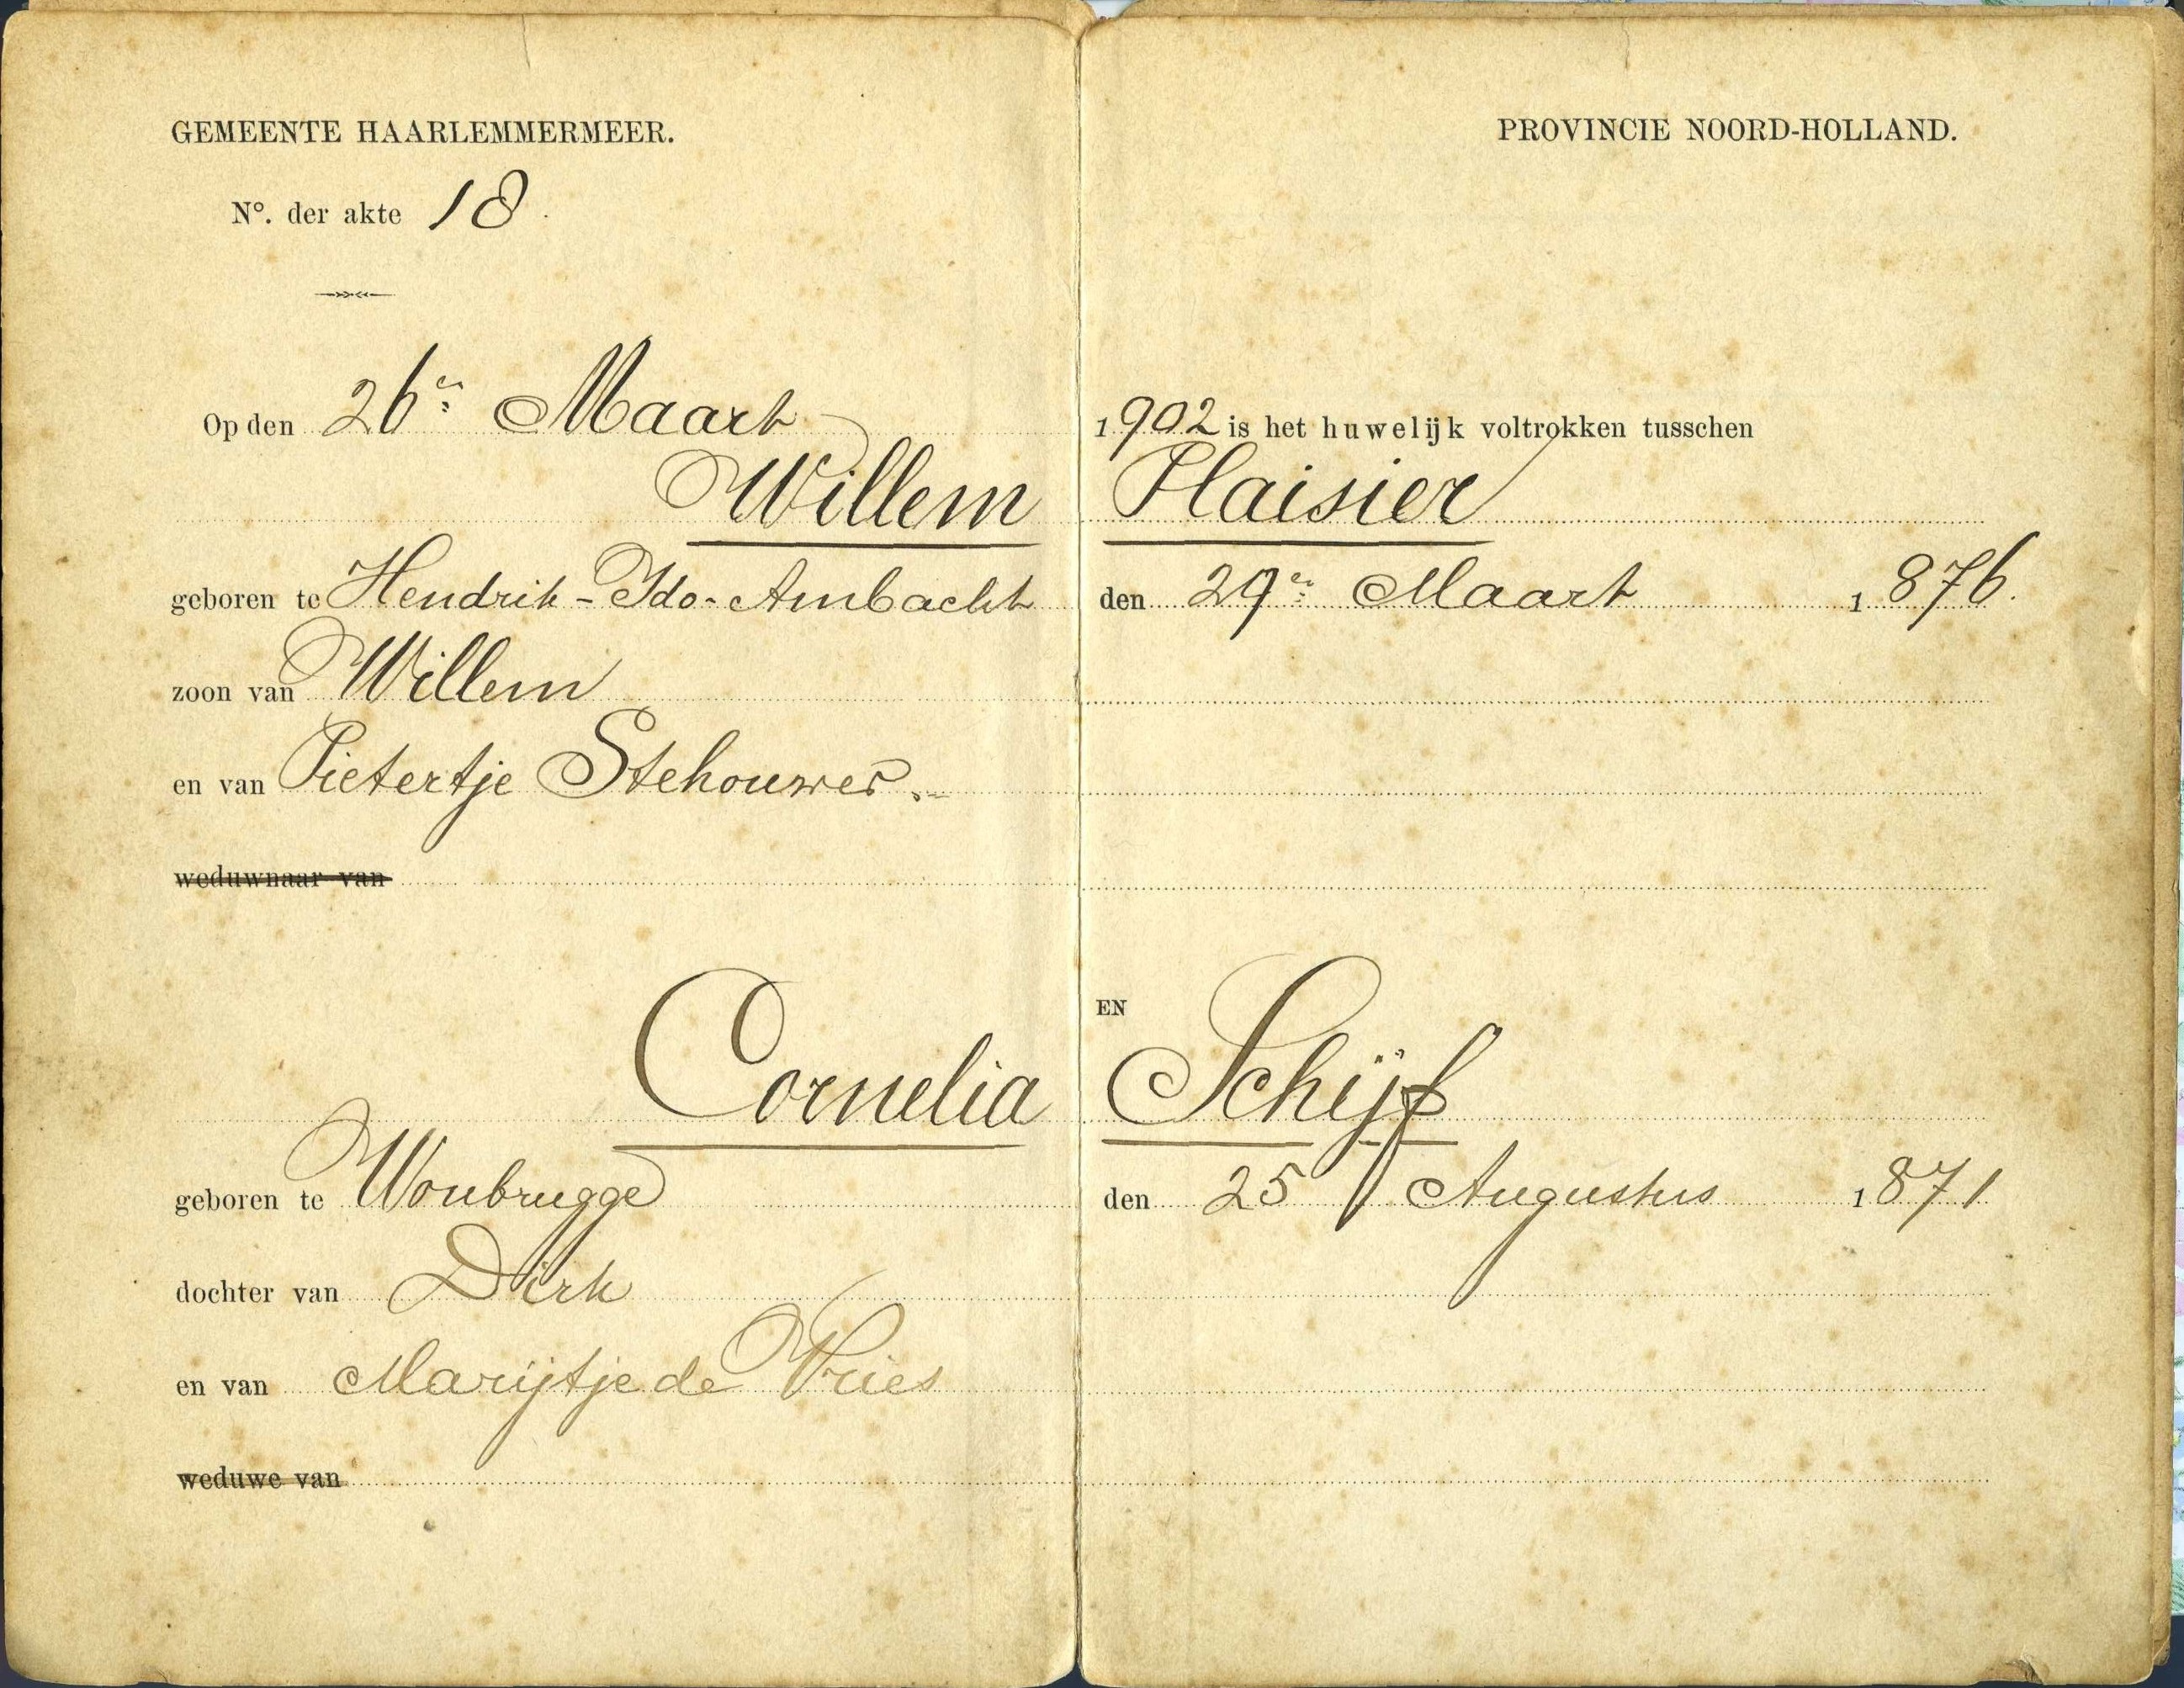 GEMEENTE HAARLEMMERMEER. PROVINCIE NOORD-HOLLAND.
N°. der akte 18.
Op den 26en Maart 1902 is het huwelijk voltrokken tusschen
Willem Plaisier
geboren te Hendrik-Ido-Ambacht den 29en Maart 1876.
zoon van Willem
en van Pietertje Stehouwer.
weduwnaar van
EN
Cornelia Schijf
geboren te Woubrugge den 25 Augustus 1871
dochter van Dirk
en van Marijtje de Vries
weduwe van